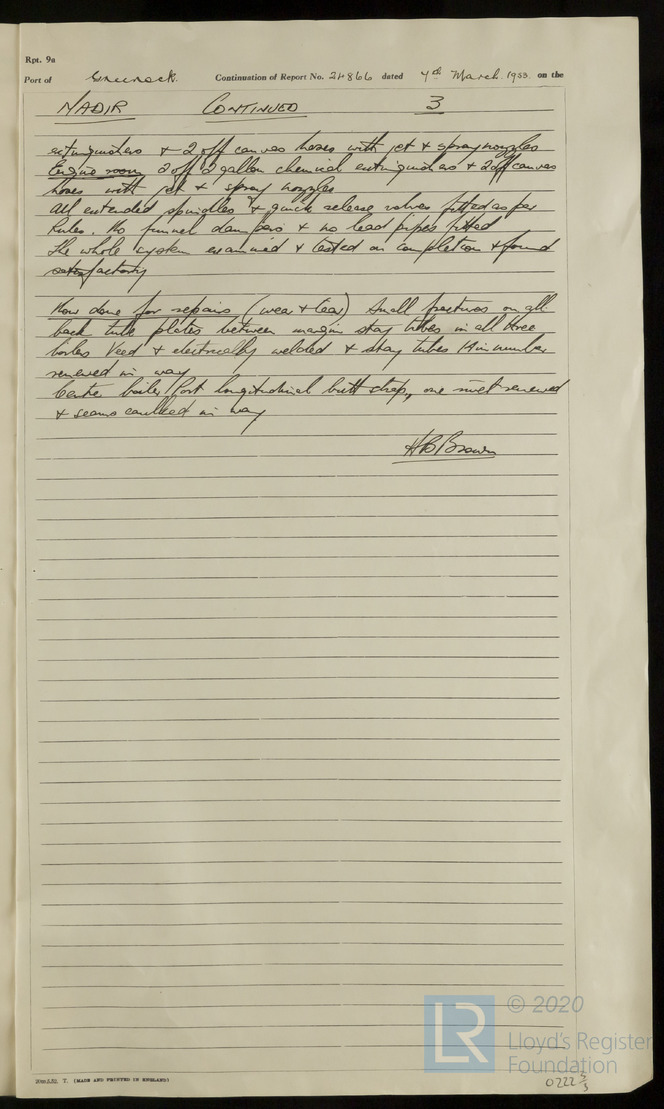 Rpt. 9a
Port of Greenock. Continuation of Report No. 24866 dated 4th March. 1953 on the
NADIR CONTINUED 3
extinguishers & 2 off canvas hoses with jet & spray nozzles
Engine room 2 off 2 gallon chemical extinguishers & 2 off canvas
hoses with jet & spray nozzles
All extended spindles & quick release valves fitted as per
Rules. No funnel dampers & no lead pipes fitted
The whole system examined & tested on completion & found
satisfactory
Now done for repairs (wear & tear) Small fractures on all
back tube plates between margin stay tubes in all three
boilers Veed & electrically welded & stay tubes 14 in number
renewed in way
Centre boiler Port longitudinal butt strap, one rivet renewed
& seams caulked in way
HB Brown
20m3.52. T. (MADE AND PRINTED IN ENGLAND)
LR
© 2020
Lloyd's Register
Foundation
0222 3/3